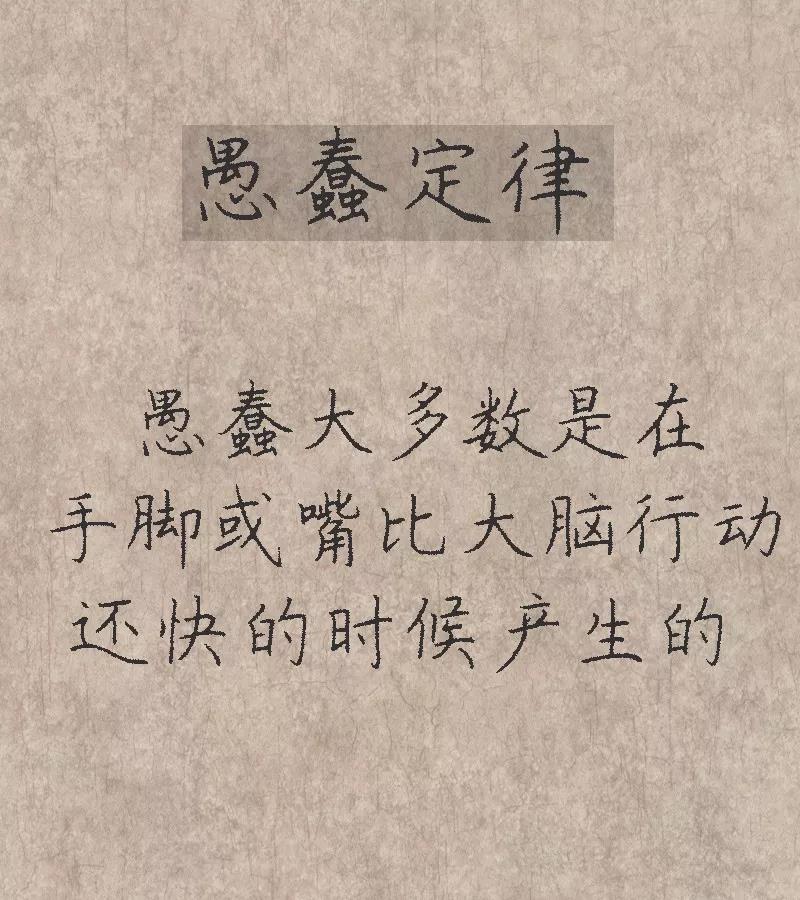 愚蠢定律
愚蠢大多数是在
手脚或嘴比大脑行动
还快的时候产生的